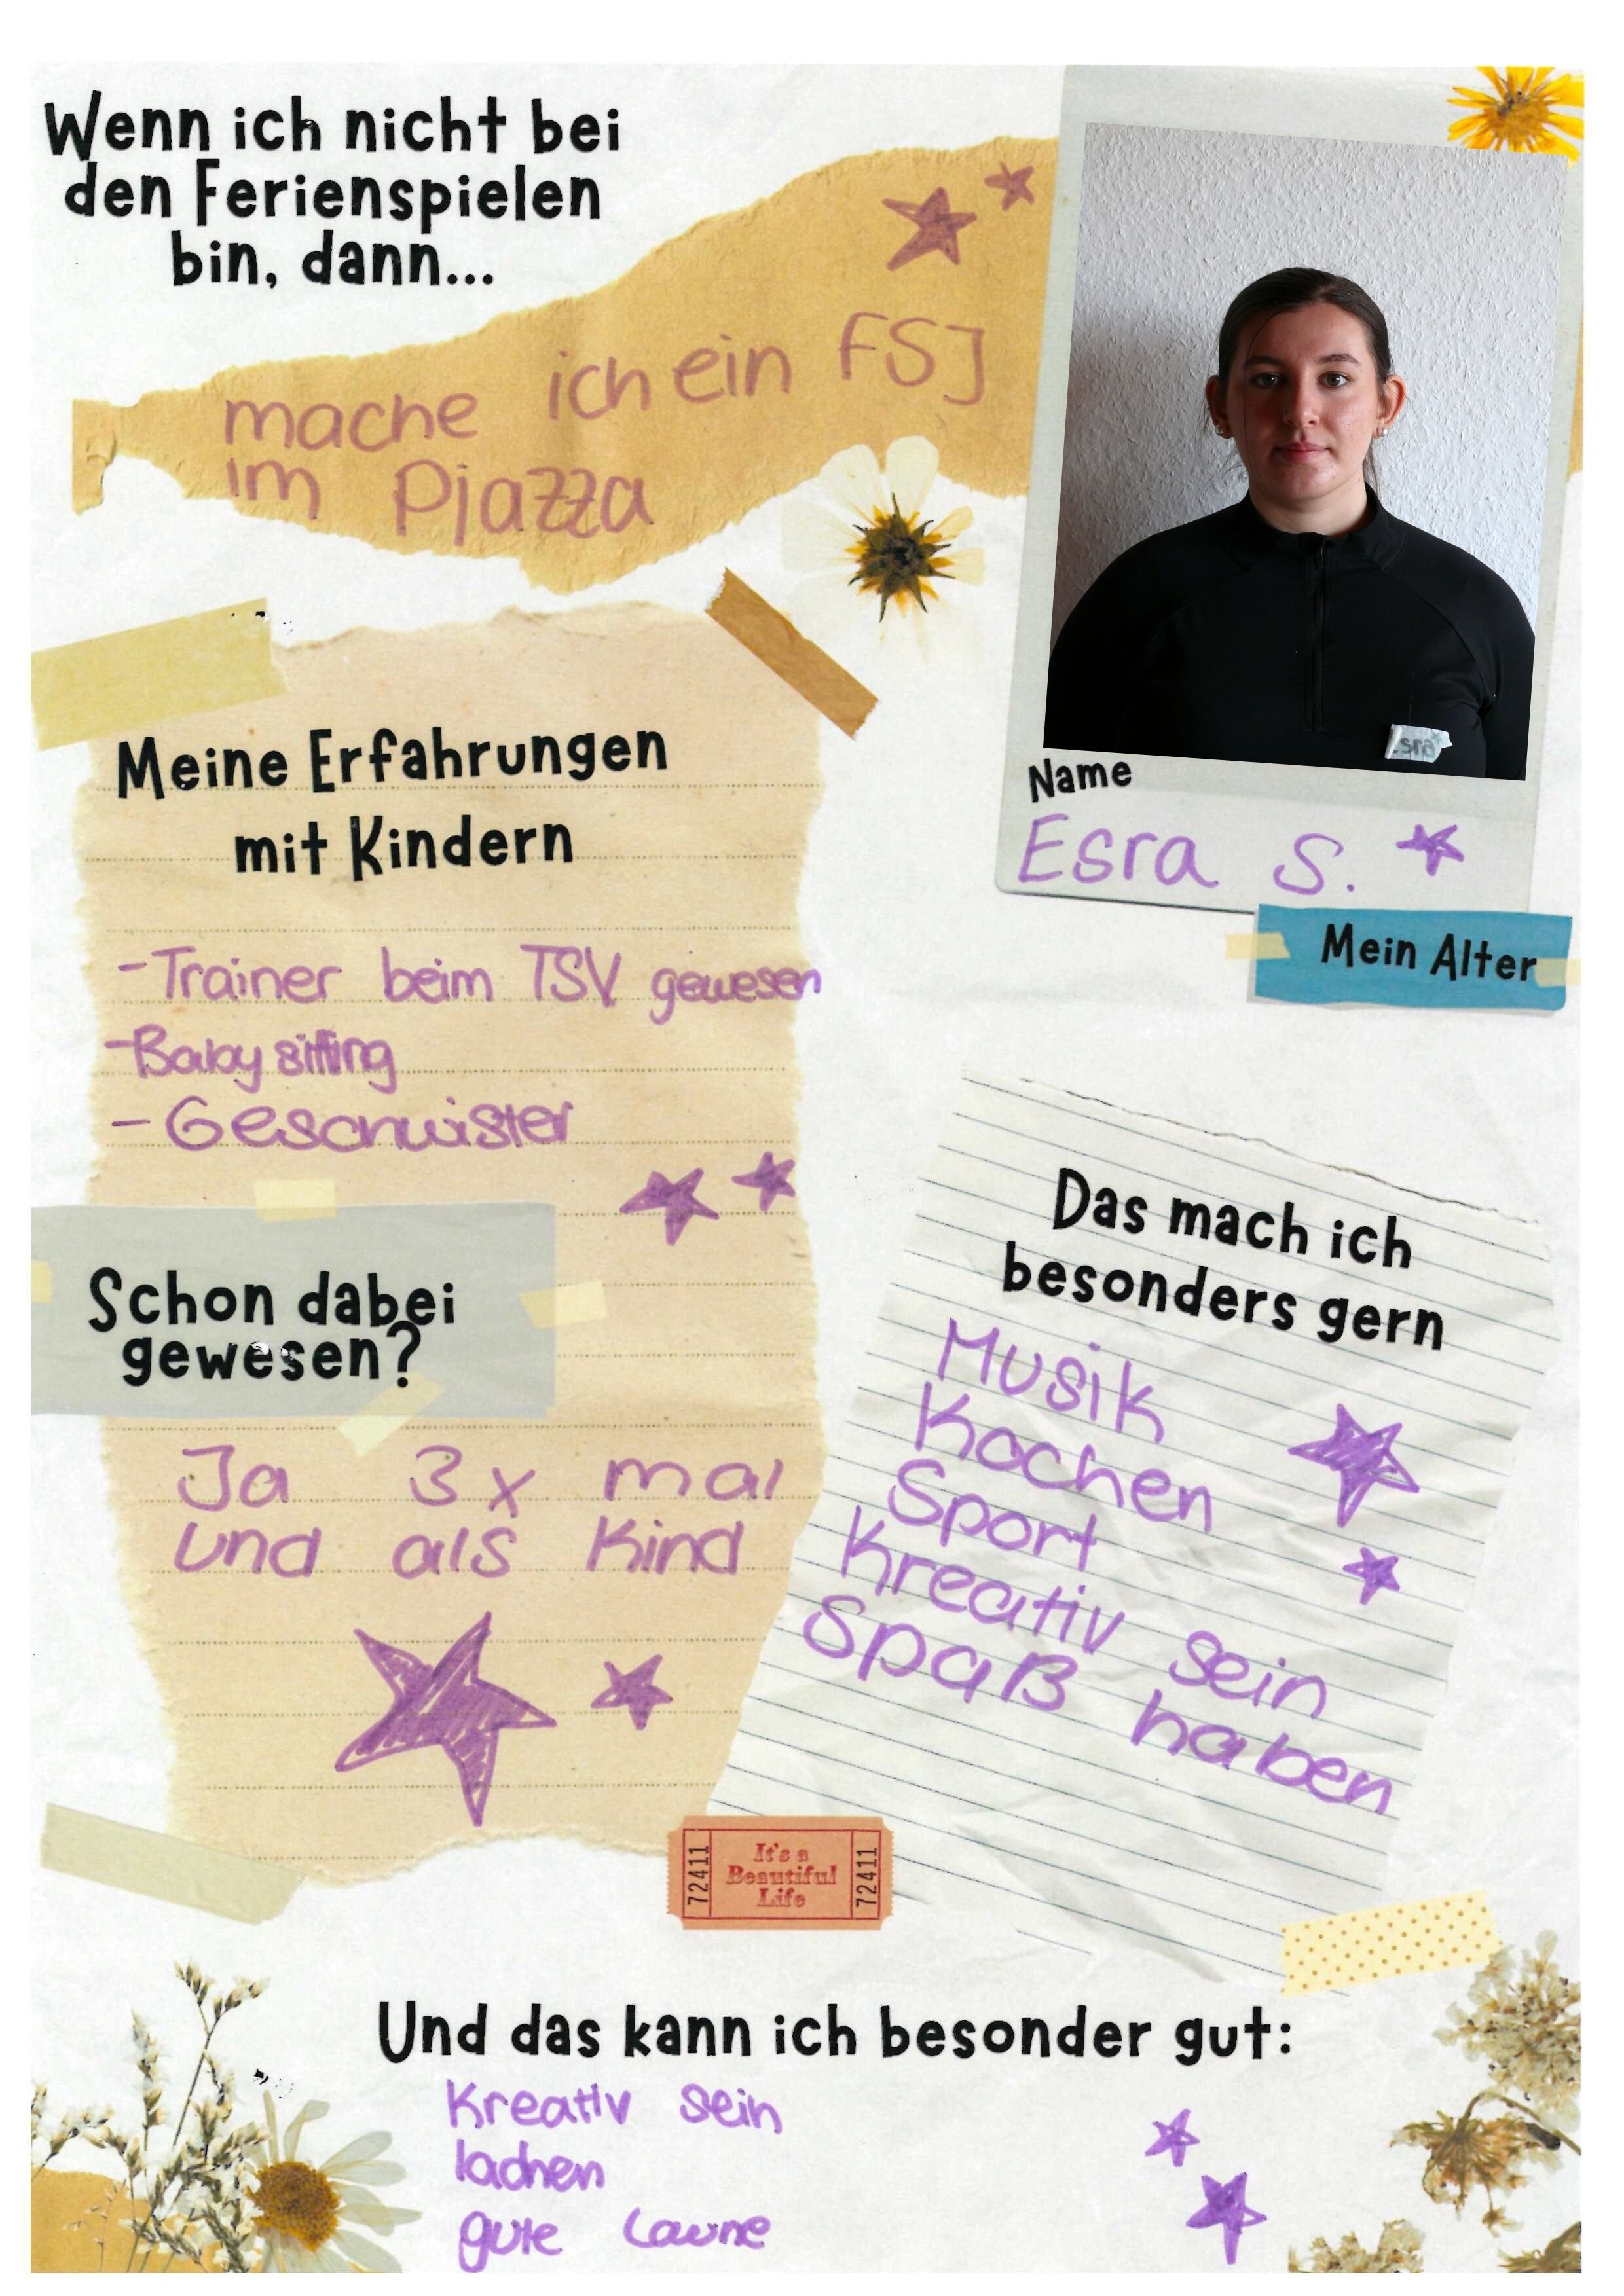 Wenn ich nicht bei
den Ferienspielen
bin, dann...
mache ich ein FSJ
im Pjazza
Esra
Name
Esra S.
Mein Alter
Meine Erfahrungen
mit Kindern
-Trainer beim TSV gewesen
-Babysitting
- Geschwister
Schon dabei
gewesen?
Ja 3x mal
und als Kind
Das mach ich
besonders gern
Musik
Kochen
Sport
Kreativ sein
Spaß haben
72411
It's a
Beautiful
Life
72411
Und das kann ich besonder gut:
Kreativ sein
lachen
gute Laune